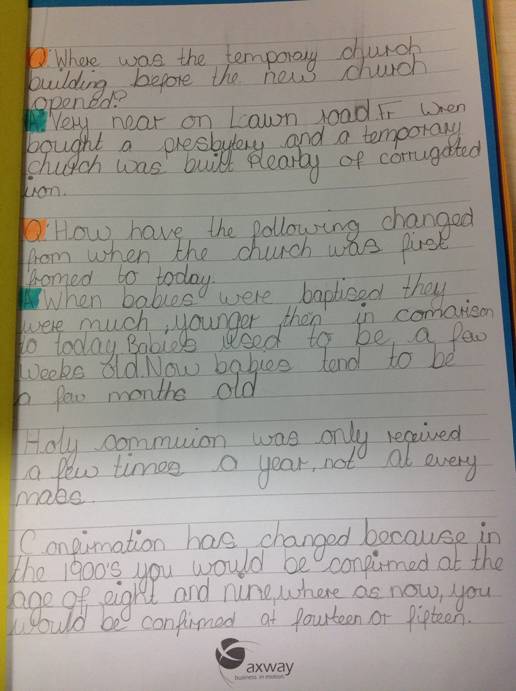 Q: Where was the temporay church
building before the new church
opened?
A: Very near on Lawn road Fr Wren
bought a presbytery and a temporary
church was built nearby of corrugated
iron.
Q: How have the following changed
from when the church was first
fromed to today.
A: When babies were baptised they
were much, younger then in comaison
to today. Babies used to be a few
weeks old. Now babies tend to be
a few months old
Holy commuion was only received
a few times a year, not at every
mass.
Confirmation has changed because in
the 1900's you would be confirmed at the
age of eight and nine, where as now, you
would be confirmed at fourteen or fifteen.
axway
business in motion